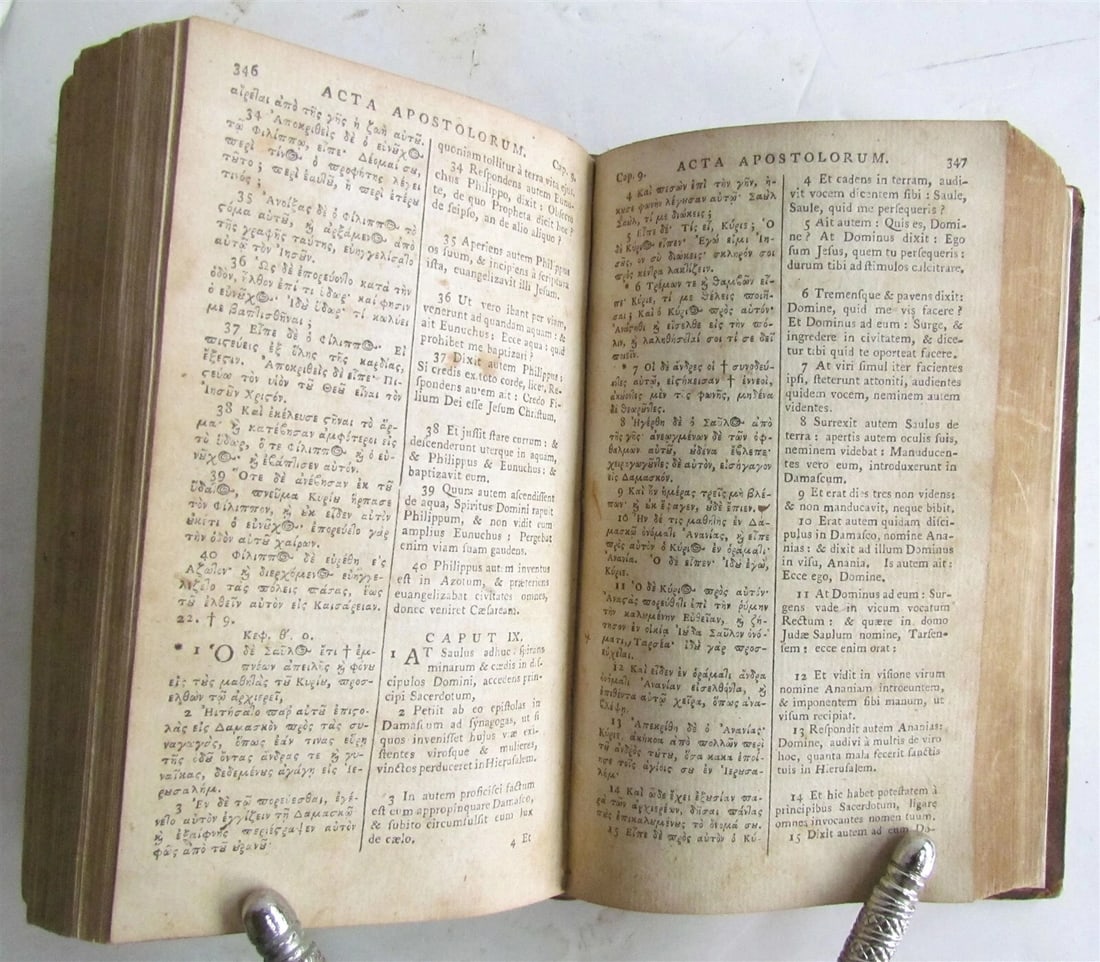 346
ACTA APOSTOLORUM.
Cap. 8.
αἴρεται ἀπὸ τῆς γῆς ἡ ζωὴ αὐτοῦ.
34 Ἀποκριθεὶς δὲ ὁ εὐνοῦχος
τῷ Φιλίππῳ, εἶπε· Δέομαί σου,
περὶ τίνος ὁ προφήτης λέγει
τοῦτο; περὶ ἑαυτοῦ, ἢ περὶ ἑτέρου
τινός;
35 Ἀνοίξας δὲ ὁ Φίλιππος τὸ
στόμα αὐτοῦ, καὶ ἀρξάμενος ἀπὸ
τῆς γραφῆς ταύτης, εὐηγγελίσατο
αὐτῷ τὸν Ἰησοῦν.
36 Ὡς δὲ ἐπορεύοντο κατὰ τὴν
ὁδὸν, ἦλθον ἐπί τι ὕδωρ· καί φησιν
ὁ εὐνοῦχος· Ἰδοὺ ὕδωρ· τί κωλύει
με βαπτισθῆναι;
37 Εἶπε δὲ ὁ Φίλιππος· Εἰ
πιστεύεις ἐξ ὅλης τῆς καρδίας,
ἔξεστιν. Ἀποκριθεὶς δὲ εἶπε· Πι-
στεύω τὸν υἱὸν τοῦ Θεοῦ εἶναι τὸν
Ἰησοῦν Χριστόν.
38 Καὶ ἐκέλευσε στῆναι τὸ ἅρ-
μα· καὶ κατέβησαν ἀμφότεροι εἰς
τὸ ὕδωρ, ὅ τε Φίλιππος καὶ ὁ εὐ-
νοῦχος· καὶ ἐβάπτισεν αὐτόν.
39 Ὅτε δὲ ἀνέβησαν ἐκ τοῦ
ὕδατος, πνεῦμα Κυρίου ἥρπασε
τὸν Φίλιππον, καὶ οὐκ εἶδεν αὐτὸν
οὐκέτι ὁ εὐνοῦχος· ἐπορεύετο γὰρ
τὴν ὁδὸν αὐτοῦ χαίρων.
40 Φίλιππος δὲ εὑρέθη εἰς
Ἄζωτον· καὶ διερχόμενος εὐηγγε-
λίζετο τὰς πόλεις πάσας, ἕως
τοῦ ἐλθεῖν αὐτὸν εἰς Καισάρειαν.
22. † 9.
Κεφ. θ′. 9.
* 1 Ὁ δὲ Σαῦλος ἔτι † ἐμ-
πνέων ἀπειλῆς καὶ φόνου
εἰς τοὺς μαθητὰς τοῦ Κυρίου, προσ-
ελθὼν τῷ ἀρχιερεῖ,
2 ᾘτήσατο παρ' αὐτοῦ ἐπιστο-
λὰς εἰς Δαμασκὸν πρὸς τὰς συ-
ναγωγὰς, ὅπως ἐάν τινας εὕρῃ
τῆς ὁδοῦ ὄντας ἄνδρας τε καὶ γυ-
ναῖκας, δεδεμένους ἀγάγῃ εἰς Ἱε-
ρουσαλήμ.
3 Ἐν δὲ τῷ πορεύεσθαι, ἐγέ-
νετο αὐτὸν ἐγγίζειν τῇ Δαμασκῷ·
καὶ ἐξαίφνης περιήστραψεν αὐτὸν
φῶς ἀπὸ τοῦ οὐρανοῦ·
quoniam tollitur à terra vita ejus.
34 Respondens autem Eunu-
chus Philippo, dixit: Obsecro
te, de quo Propheta dicit hoc?
de seipso, an de alio aliquo?
35 Aperiens autem Philippus
os suum, & incipiens à scriptura
ista, euangelizavit illi Jesum.
36 Ut vero ibant per viam,
venerunt ad quandam aquam: &
ait Eunuchus: Ecce aqua: quid
prohibet me baptizari?
37 Dixit autem Philippus:
Si credis ex toto corde, licet. Re-
spondens autem ait: Credo Fi-
lium Dei esse Jesum Christum.
38 Et jussit stare currum: &
descenderunt uterque in aquam,
& Philippus & Eunuchus: &
baptizavit eum.
39 Quum autem ascendissent
de aqua, Spiritus Domini rapuit
Philippum, & non vidit eum
amplius Eunuchus: Pergebat
enim viam suam gaudens.
40 Philippus autem inventus
est in Azotum, & præteriens
euangelizabat civitates omnes,
donec veniret Cæsaream.
CAPUT IX.
1 AT Saulus adhuc spirans
minarum & cædis in dis-
cipulos Domini, accedens prin-
cipi Sacerdotum,
2 Petiit ab eo epistolas in
Damascum ad synagogas, ut si
quos invenisset hujus viæ exi-
stentes virosque & mulieres,
vinctos perduceret in Hierusalem.
3 In autem proficisci factum
est eum appropinquare Damasco,
& subito circumfulsit eum lux
de cælo.
4 Et
Cap. 9.
ACTA APOSTOLORUM.
347
4 Καὶ πεσὼν ἐπὶ τὴν γῆν, ἤ-
κουσε φωνὴν λέγουσαν αὐτῷ· Σαοὺλ
Σαοὺλ, τί με διώκεις;
5 Εἶπε δέ· Τίς εἶ, Κύριε; Ὁ
δὲ Κύριος εἶπεν· Ἐγώ εἰμι Ἰη-
σοῦς, ὃν σὺ διώκεις· σκληρόν σοι
πρὸς κέντρα λακτίζειν.
* 6 Τρέμων τε καὶ θαμβῶν εἶ-
πε· Κύριε, τί με θέλεις ποιῆ-
σαι; Καὶ ὁ Κύριος πρὸς αὐτόν·
Ἀνάστηθι καὶ εἴσελθε εἰς τὴν πό-
λιν, καὶ λαληθήσεταί σοι τί σε δεῖ
ποιεῖν.
* 7 Οἱ δὲ ἄνδρες οἱ † συνοδεύ-
οντες αὐτῷ, εἱστήκεισαν † ἐννεοὶ,
ἀκούοντες μὲν τῆς φωνῆς, μηδένα
δὲ θεωροῦντες.
8 Ἠγέρθη δὲ ὁ Σαῦλος ἀπὸ
τῆς γῆς· ἀνεῳγμένων δὲ τῶν ὀφ-
θαλμῶν αὐτοῦ, οὐδένα ἔβλεπε·
χειραγωγοῦντες δὲ αὐτὸν, εἰσήγαγον
εἰς Δαμασκόν.
9 Καὶ ἦν ἡμέρας τρεῖς μὴ βλέ-
πων· καὶ οὐκ ἔφαγεν, οὐδὲ ἔπιεν.
10 Ἦν δέ τις μαθητὴς ἐν Δα-
μασκῷ ὀνόματι Ἀνανίας, καὶ εἶπε
πρὸς αὐτὸν ὁ Κύριος ἐν ὁράματι·
Ἀνανία. Ὁ δὲ εἶπεν· Ἰδοὺ ἐγὼ,
Κύριε.
11 Ὁ δὲ Κύριος πρὸς αὐτόν·
Ἀναστὰς πορεύθητι ἐπὶ τὴν ῥύμην
τὴν καλουμένην Εὐθεῖαν, καὶ ζή-
τησον ἐν οἰκίᾳ Ἰούδα Σαῦλον ὀνό-
ματι, Ταρσέα· ἰδοὺ γὰρ προσ-
εύχεται.
12 Καὶ εἶδεν ἐν ὁράματι ἄνδρα
ὀνόματι Ἀνανίαν εἰσελθόντα, καὶ
ἐπιθέντα αὐτῷ χεῖρα, ὅπως ἀνα-
βλέψῃ.
13 Ἀπεκρίθη δὲ ὁ Ἀνανίας·
Κύριε, ἀκήκοα ἀπὸ πολλῶν περὶ
τοῦ ἀνδρὸς τούτου, ὅσα κακὰ ἐποί-
ησε τοῖς ἁγίοις σου ἐν Ἱερουσα-
λήμ·
14 Καὶ ὧδε ἔχει ἐξουσίαν πα-
ρὰ τῶν ἀρχιερέων, δῆσαι πάντας
τοὺς ἐπικαλουμένους τὸ ὄνομά σου.
15 Εἶπε δὲ πρὸς αὐτὸν ὁ Κύ-
4 Et cadens in terram, audi-
vit vocem dicentem sibi: Saule,
Saule, quid me persequeris?
5 Ait autem: Quis es, Domi-
ne? At Dominus dixit: Ego
sum Jesus, quem tu persequeris:
durum tibi ad stimulos calcitrare.
6 Tremensque & pavens dixit:
Domine, quid me vis facere?
Et Dominus ad eum: Surge, &
ingredere in civitatem, & dice-
tur tibi quid te oporteat facere.
7 At viri simul iter facientes
ipsi, steterunt attoniti, audientes
quidem vocem, neminem autem
videntes.
8 Surrexit autem Saulus de
terra: apertis autem oculis suis,
neminem videbat: Manuducen-
tes vero eum, introduxerunt in
Damascum.
9 Et erat dies tres non videns:
& non manducavit, neque bibit.
10 Erat autem quidam disci-
pulus in Damasco, nomine Ana-
nias: & dixit ad illum Dominus
in visu, Anania. Is autem ait:
Ecce ego, Domine.
11 At Dominus ad eum: Sur-
gens vade in vicum vocatum
Rectum: & quære in domo
Judæ Saulum nomine, Tarsen-
sem: ecce enim orat:
12 Et vidit in visione virum
nomine Ananiam introeuntem,
& imponentem sibi manum, ut
visum recipiat.
13 Respondit autem Ananias:
Domine, audivi à multis de viro
hoc, quanta mala fecerit sanctis
tuis in Hierusalem.
14 Et hic habet potestatem à
principibus Sacerdotum, ligare
omnes invocantes nomen tuum.
15 Dixit autem ad eum Do-